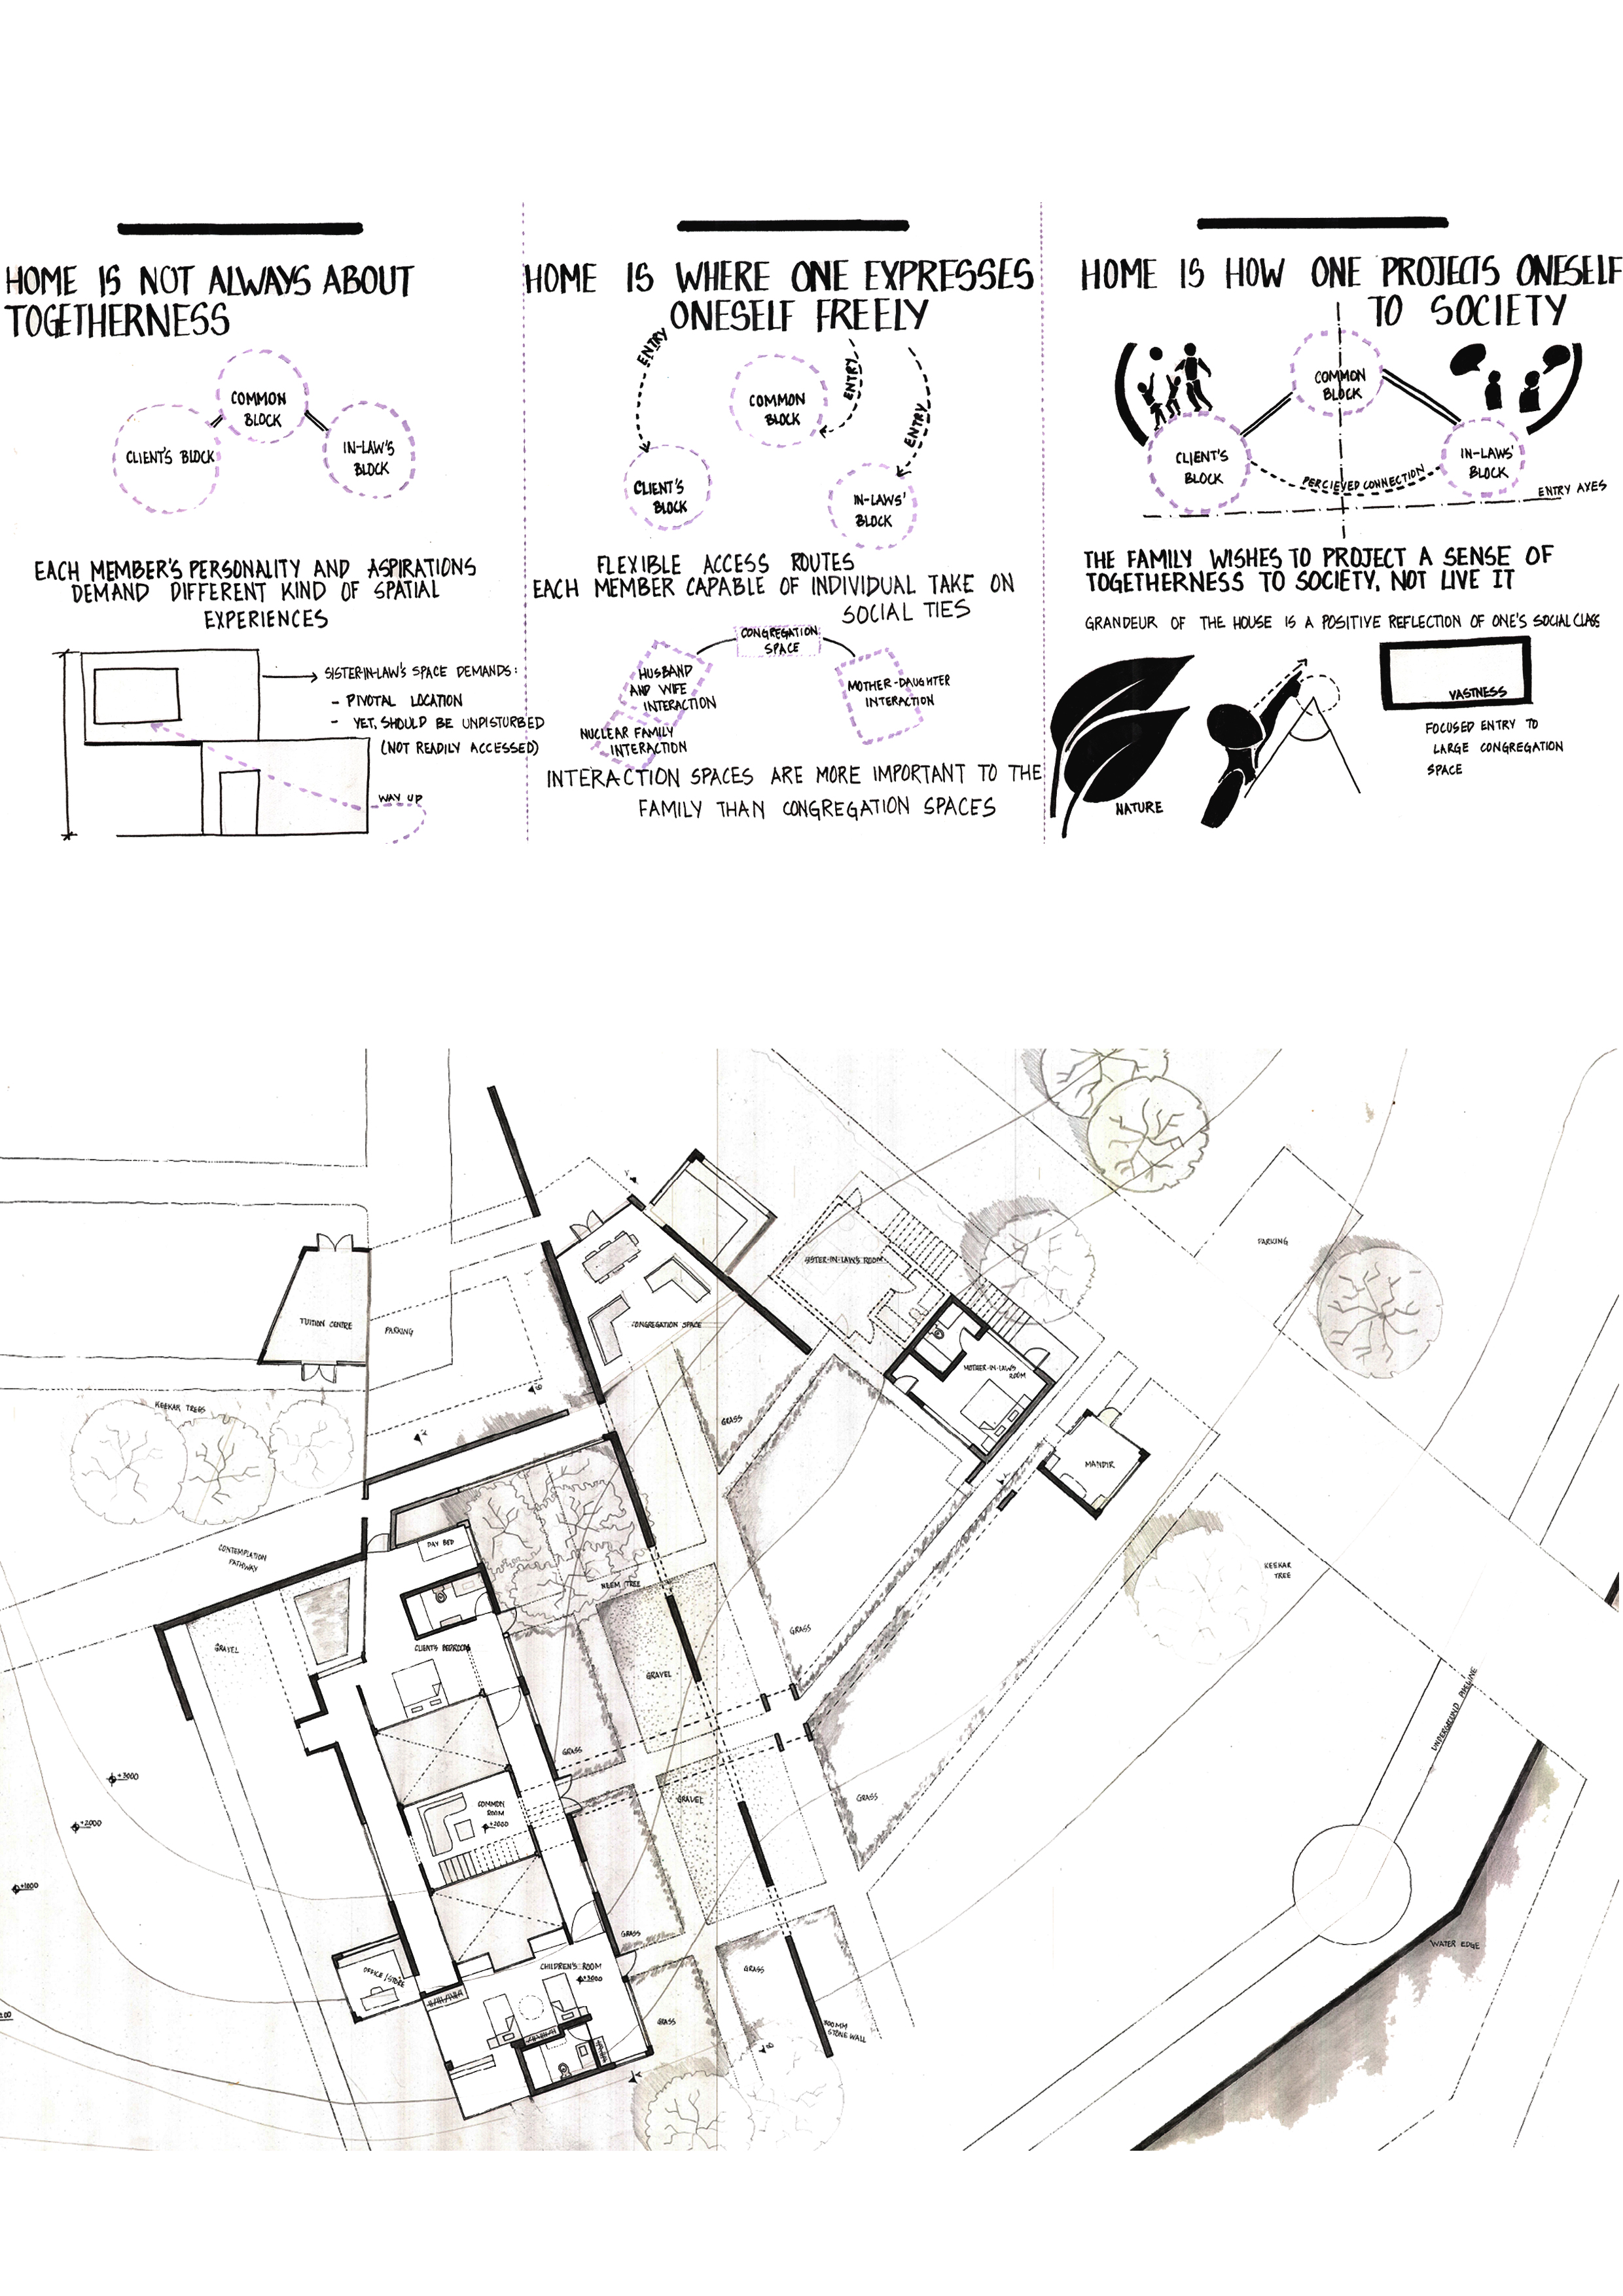 HOME IS NOT ALWAYS ABOUT
TOGETHERNESS
COMMON
BLOCK
CLIENT'S BLOCK
IN-LAW'S
BLOCK
EACH MEMBER'S PERSONALITY AND ASPIRATIONS
DEMAND DIFFERENT KIND OF SPATIAL
EXPERIENCES
SISTER-IN-LAW'S SPACE DEMANDS:
- PIVOTAL LOCATION
- YET, SHOULD BE UNDISTURBED
(NOT READILY ACCESSED)
WAY UP
HOME IS WHERE ONE EXPRESSES
ONESELF FREELY
ENTRY
ENTRY
ENTRY
COMMON
BLOCK
CLIENT'S
BLOCK
IN-LAWS'
BLOCK
FLEXIBLE ACCESS ROUTES
EACH MEMBER CAPABLE OF INDIVIDUAL TAKE ON
SOCIAL TIES
CONGREGATION
SPACE
HUSBAND
AND WIFE
INTERACTION
MOTHER-DAUGHTER
INTERACTION
NUCLEAR FAMILY
INTERACTION
INTERACTION SPACES ARE MORE IMPORTANT TO THE
FAMILY THAN CONGREGATION SPACES
HOME IS HOW ONE PROJECTS ONESELF
TO SOCIETY
COMMON
BLOCK
CLIENT'S
BLOCK
IN-LAWS'
BLOCK
PERCIEVED CONNECTION
ENTRY AXES
THE FAMILY WISHES TO PROJECT A SENSE OF
TOGETHERNESS TO SOCIETY, NOT LIVE IT
GRANDEUR OF THE HOUSE IS A POSITIVE REFLECTION OF ONE'S SOCIAL CLASS
NATURE
VASTNESS
FOCUSED ENTRY TO
LARGE CONGREGATION
SPACE
TUITION CENTRE
PARKING
KEEKAR TREES
CONGREGATION SPACE
SISTER-IN-LAW'S ROOM
PARKING
MOTHER-IN-LAW'S
ROOM
MANDIR
GRASS
CONTEMPLATION
PATHWAY
DAY BED
NEEM TREE
KEEKAR
TREE
GRAVEL
CLIENT'S BEDROOM
GRASS
GRAVEL
GRASS
GRAVEL
GRASS
COMMON
ROOM
+2000
+3000
+2000
+1000
UNDERGROUND PIPELINE
GRASS
GRASS
WATER EDGE
OFFICE/STORE
CHILDREN'S ROOM
+3000
GRASS
300MM
STONE WALL